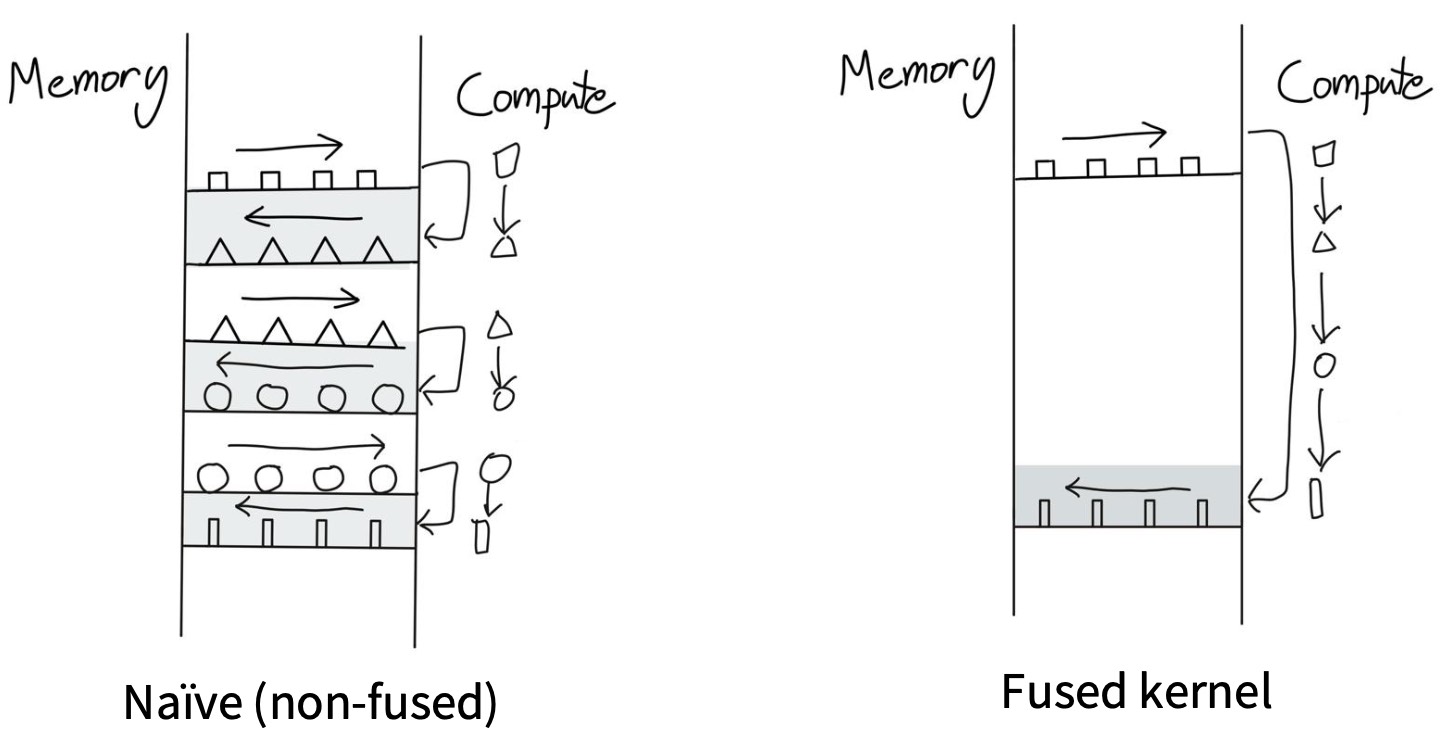 Memory
Compute
Naïve (non-fused)
Memory
Compute
Fused kernel